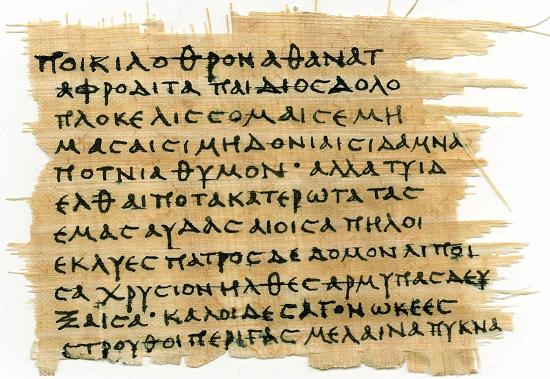 ΠΟΙΚΙΛΟΘΡΟΝΑΘΑΝΑΤ
ΑΦΡΟΔΙΤΑΠΑΙΔΙΟϹΔΟΛΟ
ΠΛΟΚΕΛΙϹϹΟΜΑΙϹΕΜΗ
ΜΑϹΑΙϹΙΜΗΔΟΝΙΑΙϹΙΔΑΜΝΑ
ΠΟΤΝΙΑΘΥΜΟΝ· ΑΛΛΑΤΥΙΔ
ΕΛΘΑΙΠΟΤΑΚΑΤΕΡΩΤΑΤΑϹ
ΕΜΑϹΑΥΔΑϹΑΙΟΙϹΑΠΗΛΟΙ
ΕΚΛΥΕϹΠΑΤΡΟϹΔΕΔΟΜΟΝΛΙΠΟΙ
ϹΑΧΡΥϹΙΟΝΗΛΘΕϹΑΡΜΥΠΑϹΔΕΥ
ΞΑΙϹΑ· ΚΑΛΟΙΔΕϹΑΓΟΝΩΚΕΕϹ
ϹΤΡΟΥΘΟΙΠΕΡΙΓΑϹΜΕΛΑΙΝΑΠΥΚΝΑ